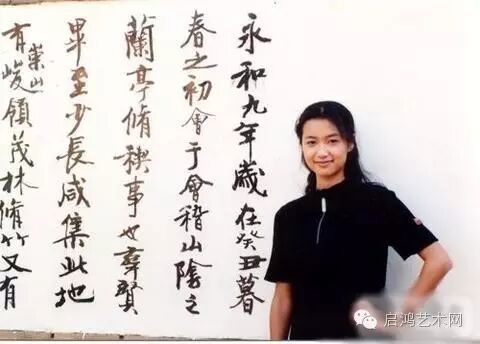 永和九年歲在癸丑暮
春之初會于會稽山陰之
蘭亭脩稧事也羣賢
畢至少長咸集此地
有崇山峻領茂林脩竹又有
启鸿艺术网